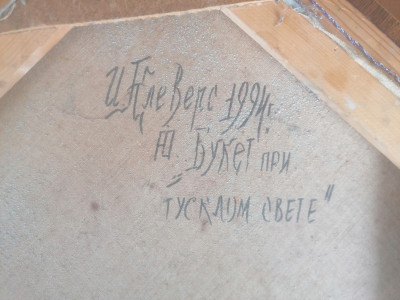 И. Клеверс 1994г.
Ю "Букет при
тусклом свете"